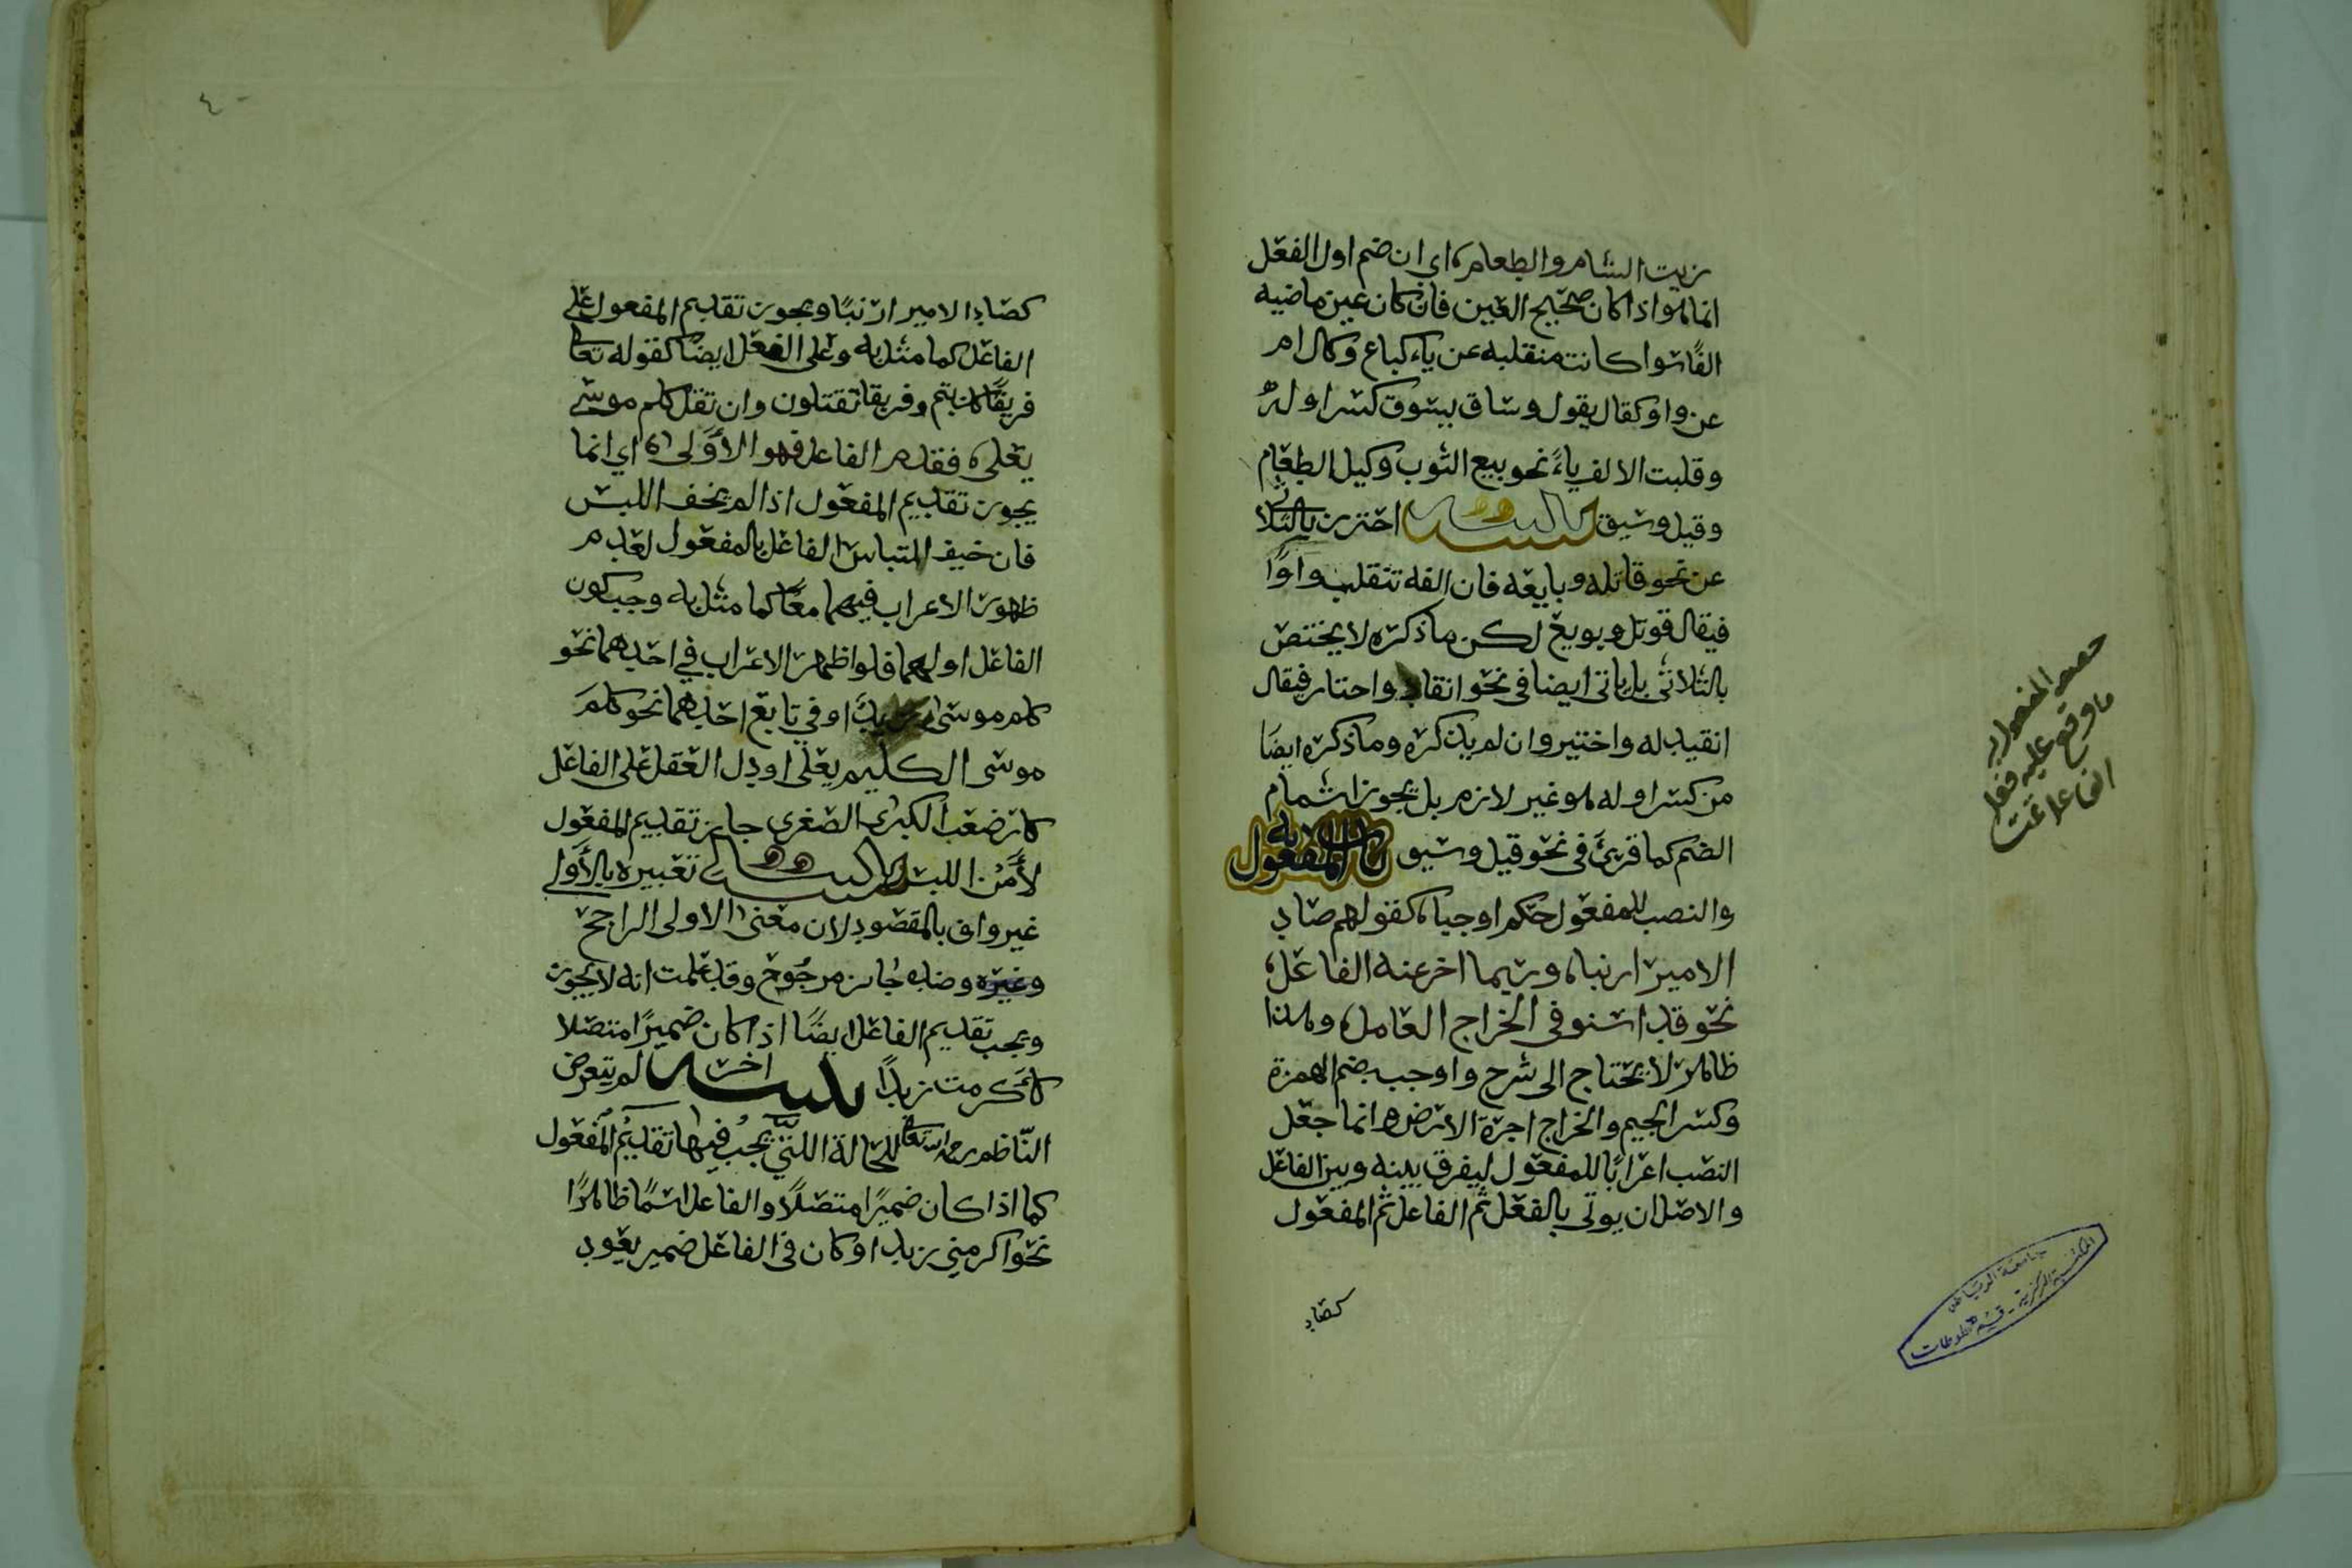 زيت الشام والطعام اي ان ضم اول الفعل
انما هو اذا كان صحيح العين فان كان عين ماضيه
الفًا سوا كانت منقلبه عن ياء كباع وكال ام
عن واو كقال يقول وساق يسوق كسر اوله
وقلبت الالف ياءً نحو بيع الثوب وكيل الطعام
وقيل وسيق تنبيه احترز بالثلاثي
عن نحو قاتله وبايعه فان الفه تنقلب واوًا
فيقال قوتل وبويع لكن ما ذكره لا يختص
بالثلاثي بل ياتي ايضا في نحو انقاد واختار فيقال
انقيد له واختير وان لم يذكره وما ذكره ايضا
من كسر اوله هو غير لازم بل يجوز اشمام
الضم كما قرئ في نحو قيل وسيق باب المفعول به
والنصب للمفعول حكم اوجبا كقولهم صاد
الامير ارنبا وربما اخر عنه الفاعل
نحو قد استوفى الخراج العامل وهذا
ظاهر لا يحتاج الى شرح واوجب بضم الهمزة
وكسر الجيم والخراج اجرة الارض وانما جعل
النصب اعرابًا للمفعول ليفرق بينه وبين الفاعل
والاصل ان يوتى بالفعل ثم الفاعل ثم المفعول
كصاد
ما وقع عليه فعل
الفاعل
جامعة الرياض
المكتبة المركزية - قسم المخطوطات
٤٠
كصاد الامير ارنبًا ويجوز تقديم المفعول على
الفاعل كما مثل به وعلى الفعل ايضًا كقوله تعالى
فريقًا كذبتم وفريقا تقتلون وان تقل كلم موسى
يعلى فقدم الفاعل فهو الأَولى اي انما
يجوز تقديم المفعول اذا لم يخف اللبس
فان خيف التباس الفاعل بالمفعول لعدم
ظهور الاعراب فيهما معًا كما مثل به وجب كون
الفاعل اولهما فلو اظهر الاعراب في احدهما نحو
كلم موسى زيدا او في تابع احدهما نحو كلم
موسى الكليم يعلى او دل العقل على الفاعل
كارضعت الكبرى الصغرى جاز تقديم المفعول
لأَمْن اللبس تنبيه تعبيره بالأولى
غير واف بالمقصود لان معنى الاولى الراجح
وغيره وضده جائز مرجوح وقد علمت انه لا يجوز
ويجب تقديم الفاعل ايضًا اذا كان ضميرًا متصلا
كأكرمت زيدًا تنبيه اخر لم يتعرض
النّاظم رحمه الله تعالى للحالة اللتي يجب فيها تقديم المفعول
كما اذا كان ضميرًا متصلًا والفاعل اسمًا ظاهرًا
نحو اكرمني زيد او كان في الفاعل ضمير يعود